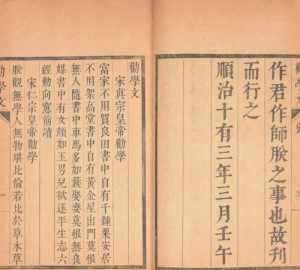 作君作師朕之事也故刊
而行之
順治十有三年三月壬午
勸學文
宋真宗皇帝勸學
富家不用買良田書中自有千鍾粟安居
不用架高堂書中自有黃金屋出門莫恨
無人隨書中車馬多如簇娶妻莫恨無良
媒書中有女顏如玉男兒欲遂平生志六
經勤向窻前讀
宋仁宗皇帝勸學
朕觀無學人無物堪比倫若比於草木草
勸學文